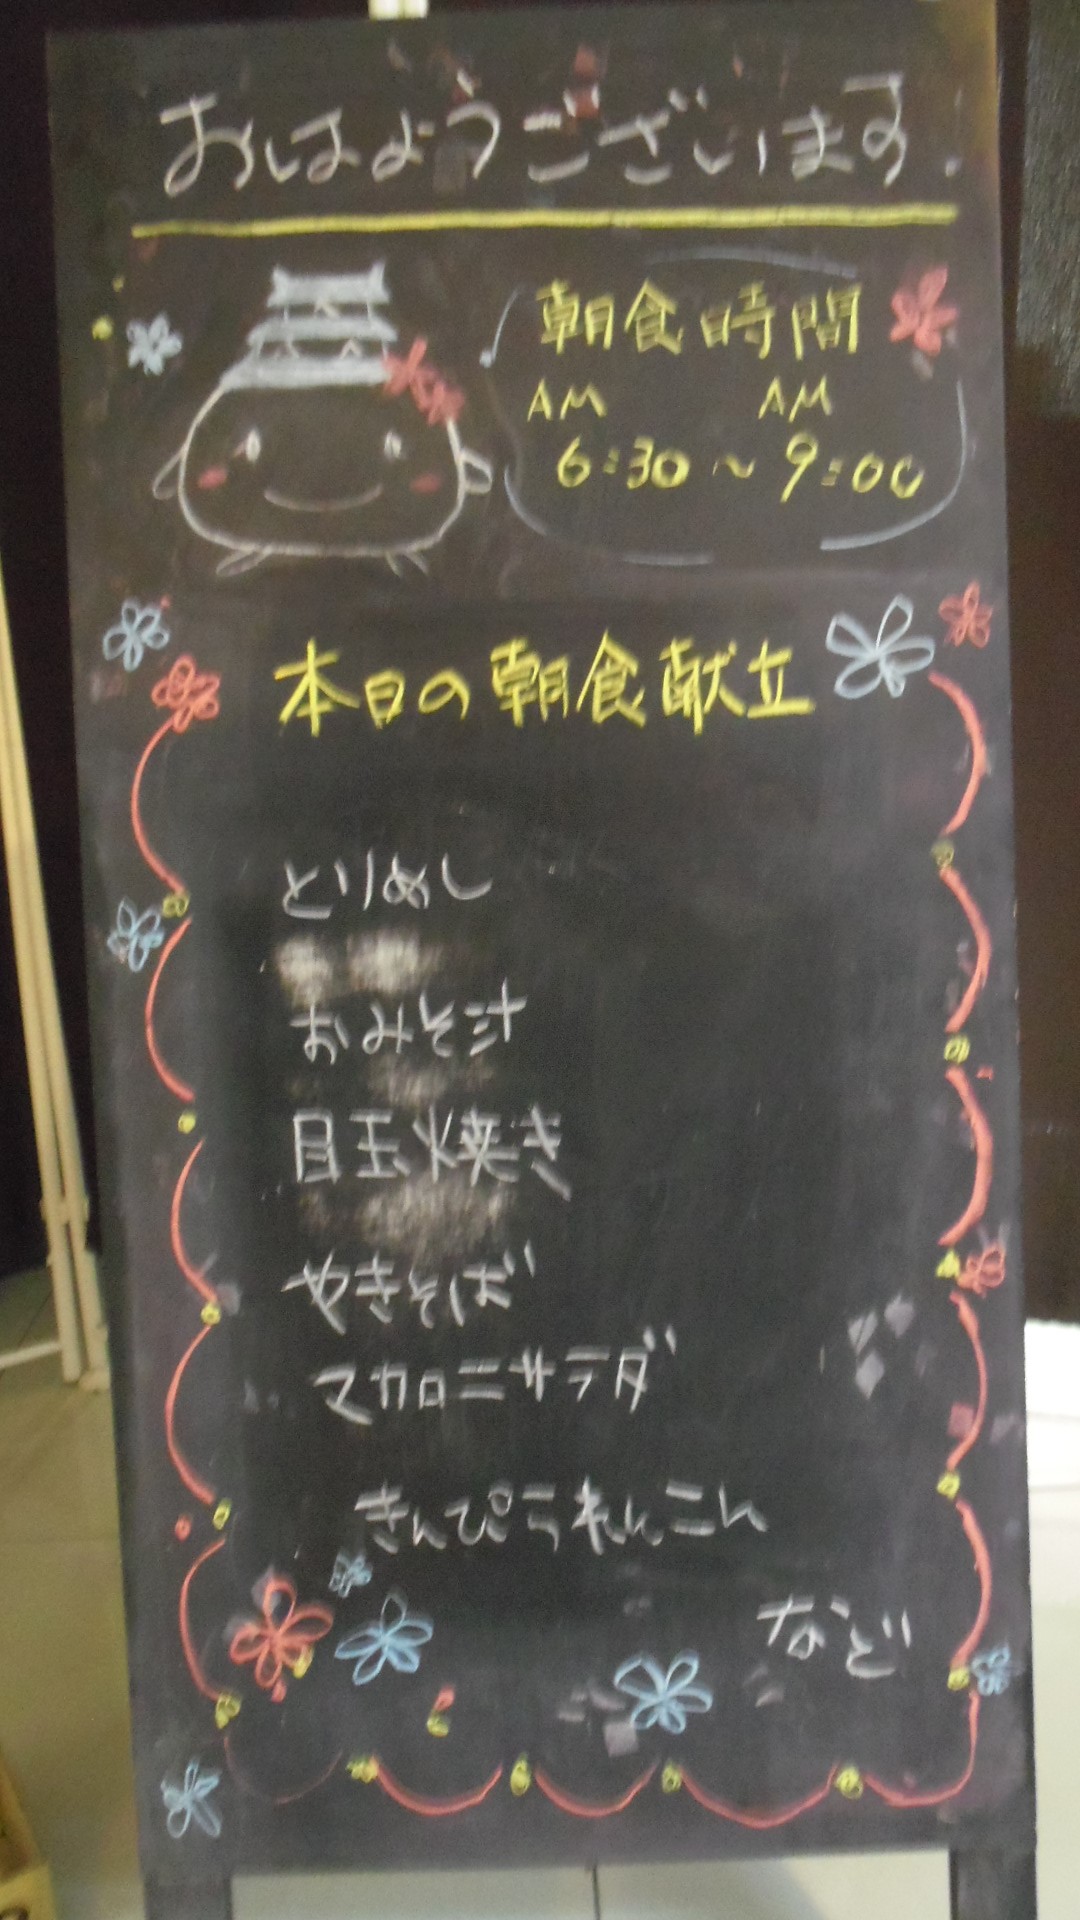 おはようございます.
朝食時間
AM AM
6:30 ~ 9:00
本日の朝食献立
とりめし
おみそ汁
目玉焼き
やきそば
マカロニサラダ
きんぴられんこん
など